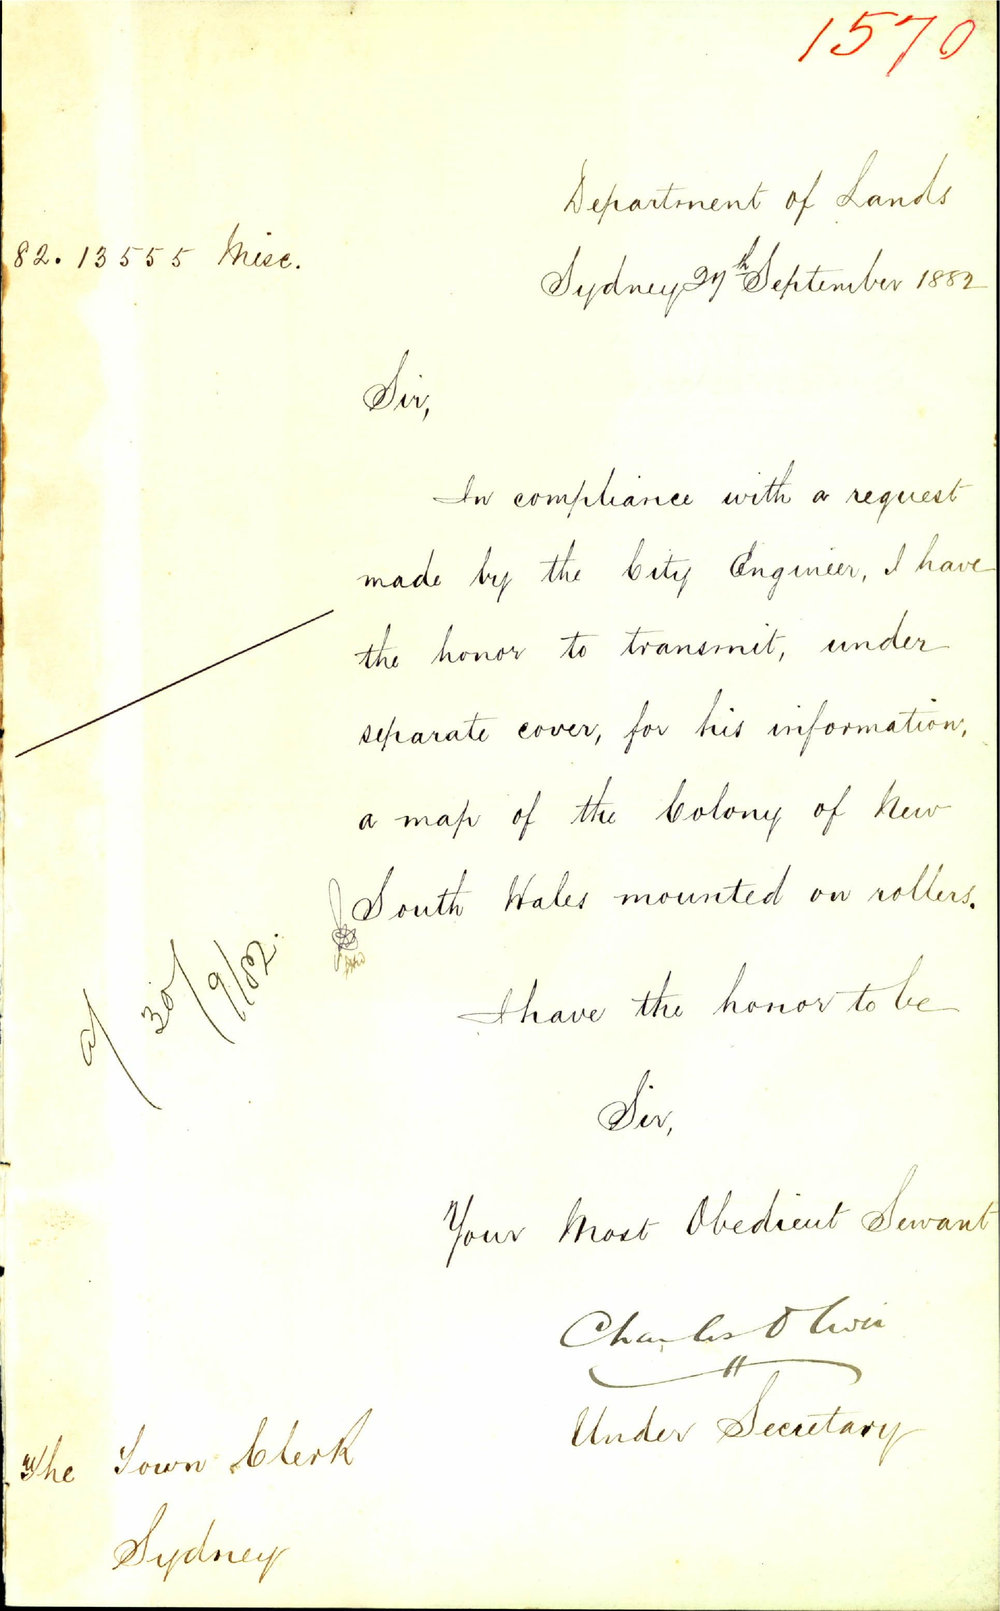 1570
Department of Lands
82. 13555 Misc.
Sydney 27th September 1882
Sir,
In compliance with a request
made by the City Engineer, I have
the honor to transmit, under
separate cover, for his information,
a map of the Colony of New
South Wales mounted on rollers.
30/9/82.
I have the honor to be
Sir,
Your Most Obedient Servant
Charles Oliver
Under Secretary
The Town Clerk
Sydney